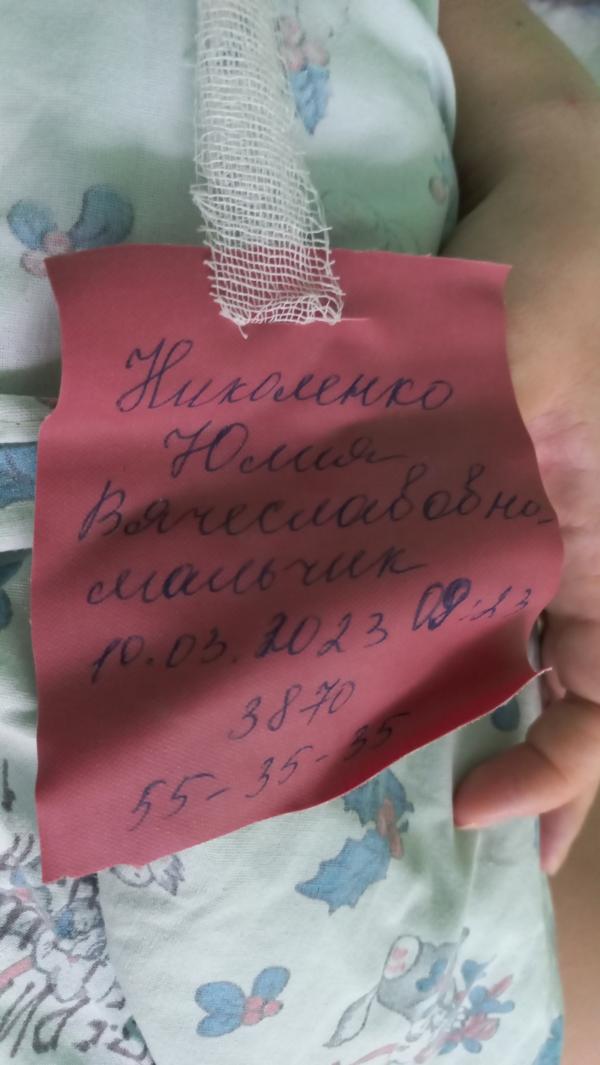 Николенко
Юлия
Вячеславовна
мальчик
10.03.2023 09:23
3870
55-35-35